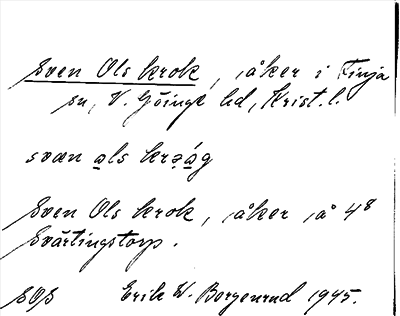 Sven Ols krok, åker i Finja
sn, V. Göinge hd, Krist. l.
svæn ols krǫ́g
Sven Ols krok, åker å 4⁸
Svärtingstorp.
Erik W. Borgenrud 1945.